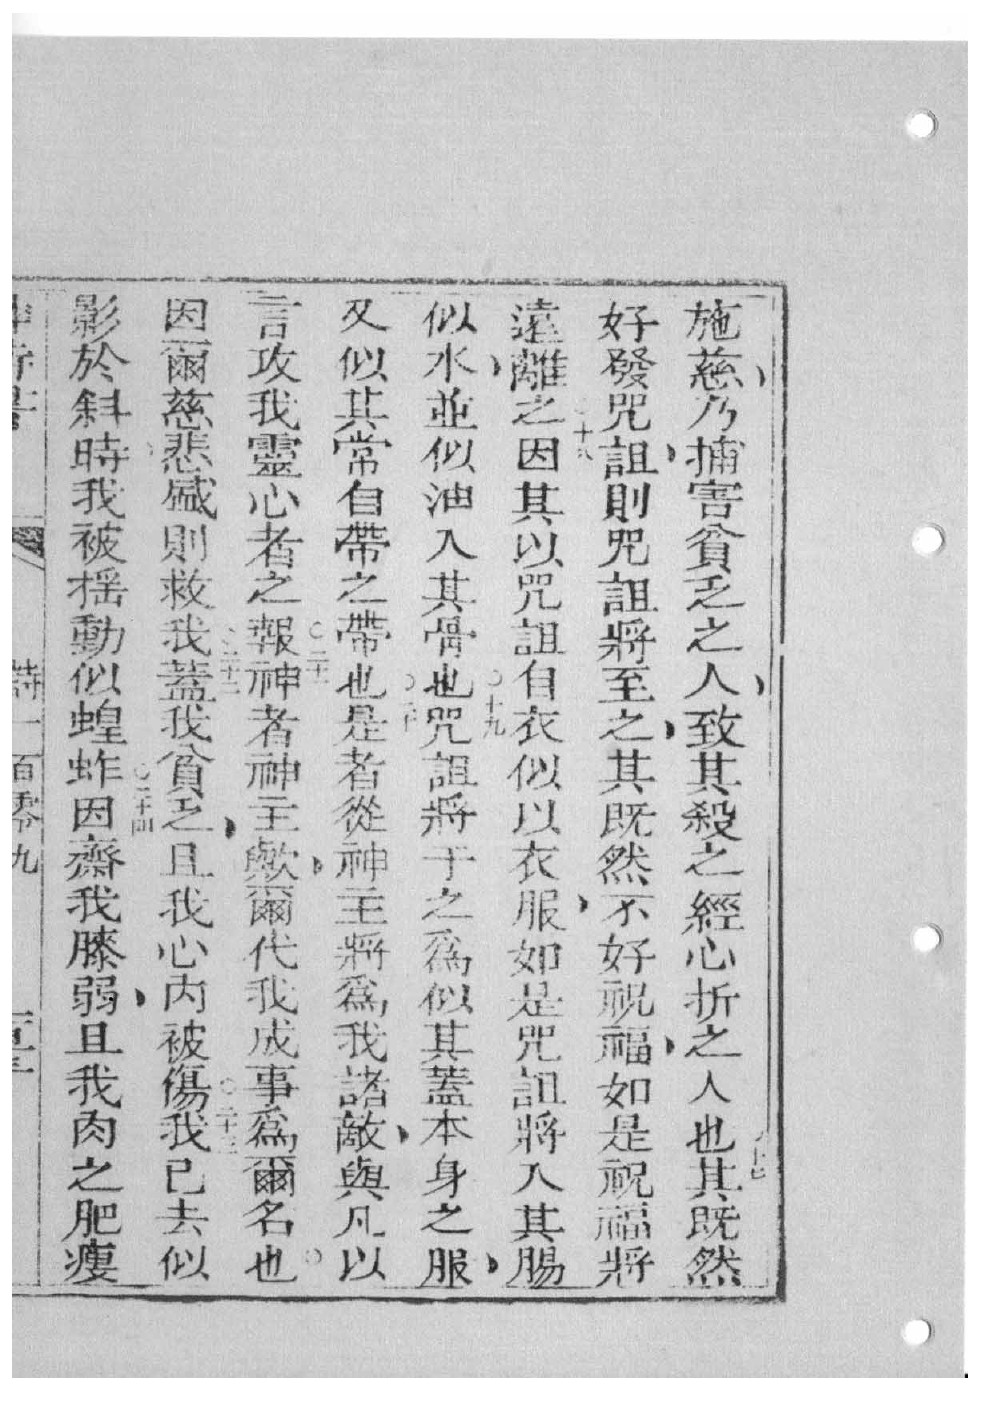 施慈乃捕害貧乏之人致其殺之經心折之人也〇十七其既然
好發咒詛則咒詛將至之其既然不好祝福如是祝福將
遠離之〇十八因其以咒詛自衣似以衣服如是咒詛將入其腸
似水並似油入其骨也〇十九咒詛將于之為似其蓋本身之服
又似其常自帶之帶也〇二十是者從神主將為我諸敵與凡以
言攻我靈心者之報〇二十一神者神主歟爾代我成事為爾名也〇
因爾慈悲盛則救我〇二十二蓋我貧乏且我心內被傷〇二十三我已去似
影於斜時我被搖動似蝗蚱〇二十四因齋我膝弱且我肉之肥瘦
詩一百零九